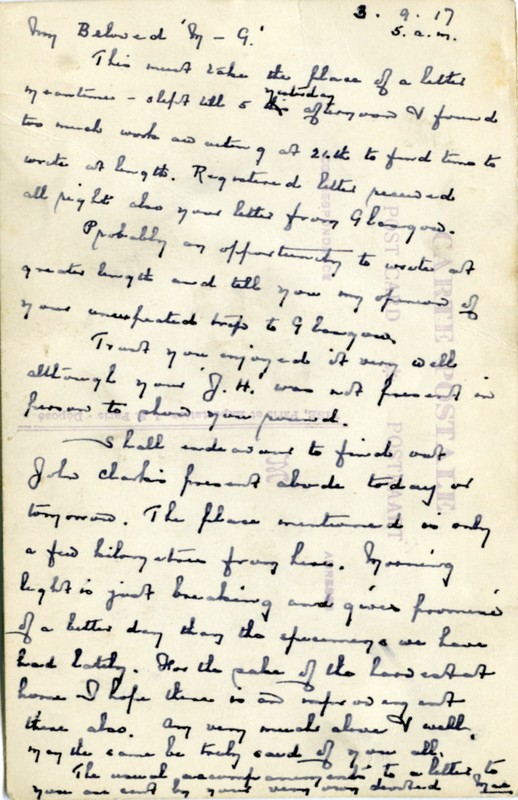 3. 9. 17
5. a.m.
My Beloved 'M - G.'
This must take the place of a letter
meantime - slept till 5 yesterday afternoon & found
too much work awaiting at 26th to find time to
write at length. Registered letter received
all right also your letter from Glasgow.
Probably an opportunity to write at
greater length and tell you my opinion of
your unexpected trip to Glasgow
Trust you enjoyed it very well
although your 'J. H.' was not present in
person to show you round.
Shall endeavour to find out
John Clark's present abode today or
tomorrow. The place mentioned is only
a few kilometres from here. Morning
light is just breaking and gives promise
of a better day than the specimens we have
had lately. For the sake of the harvest at
home I hope there is an improvement
there also. Am very much alive & well,
may the same be truly said of you all.
The usual accompaniments to a letter to
you are sent by your very own devoted
CARTE POSTALE
POST CARD
CORRESPONDENCE
POSTKAART